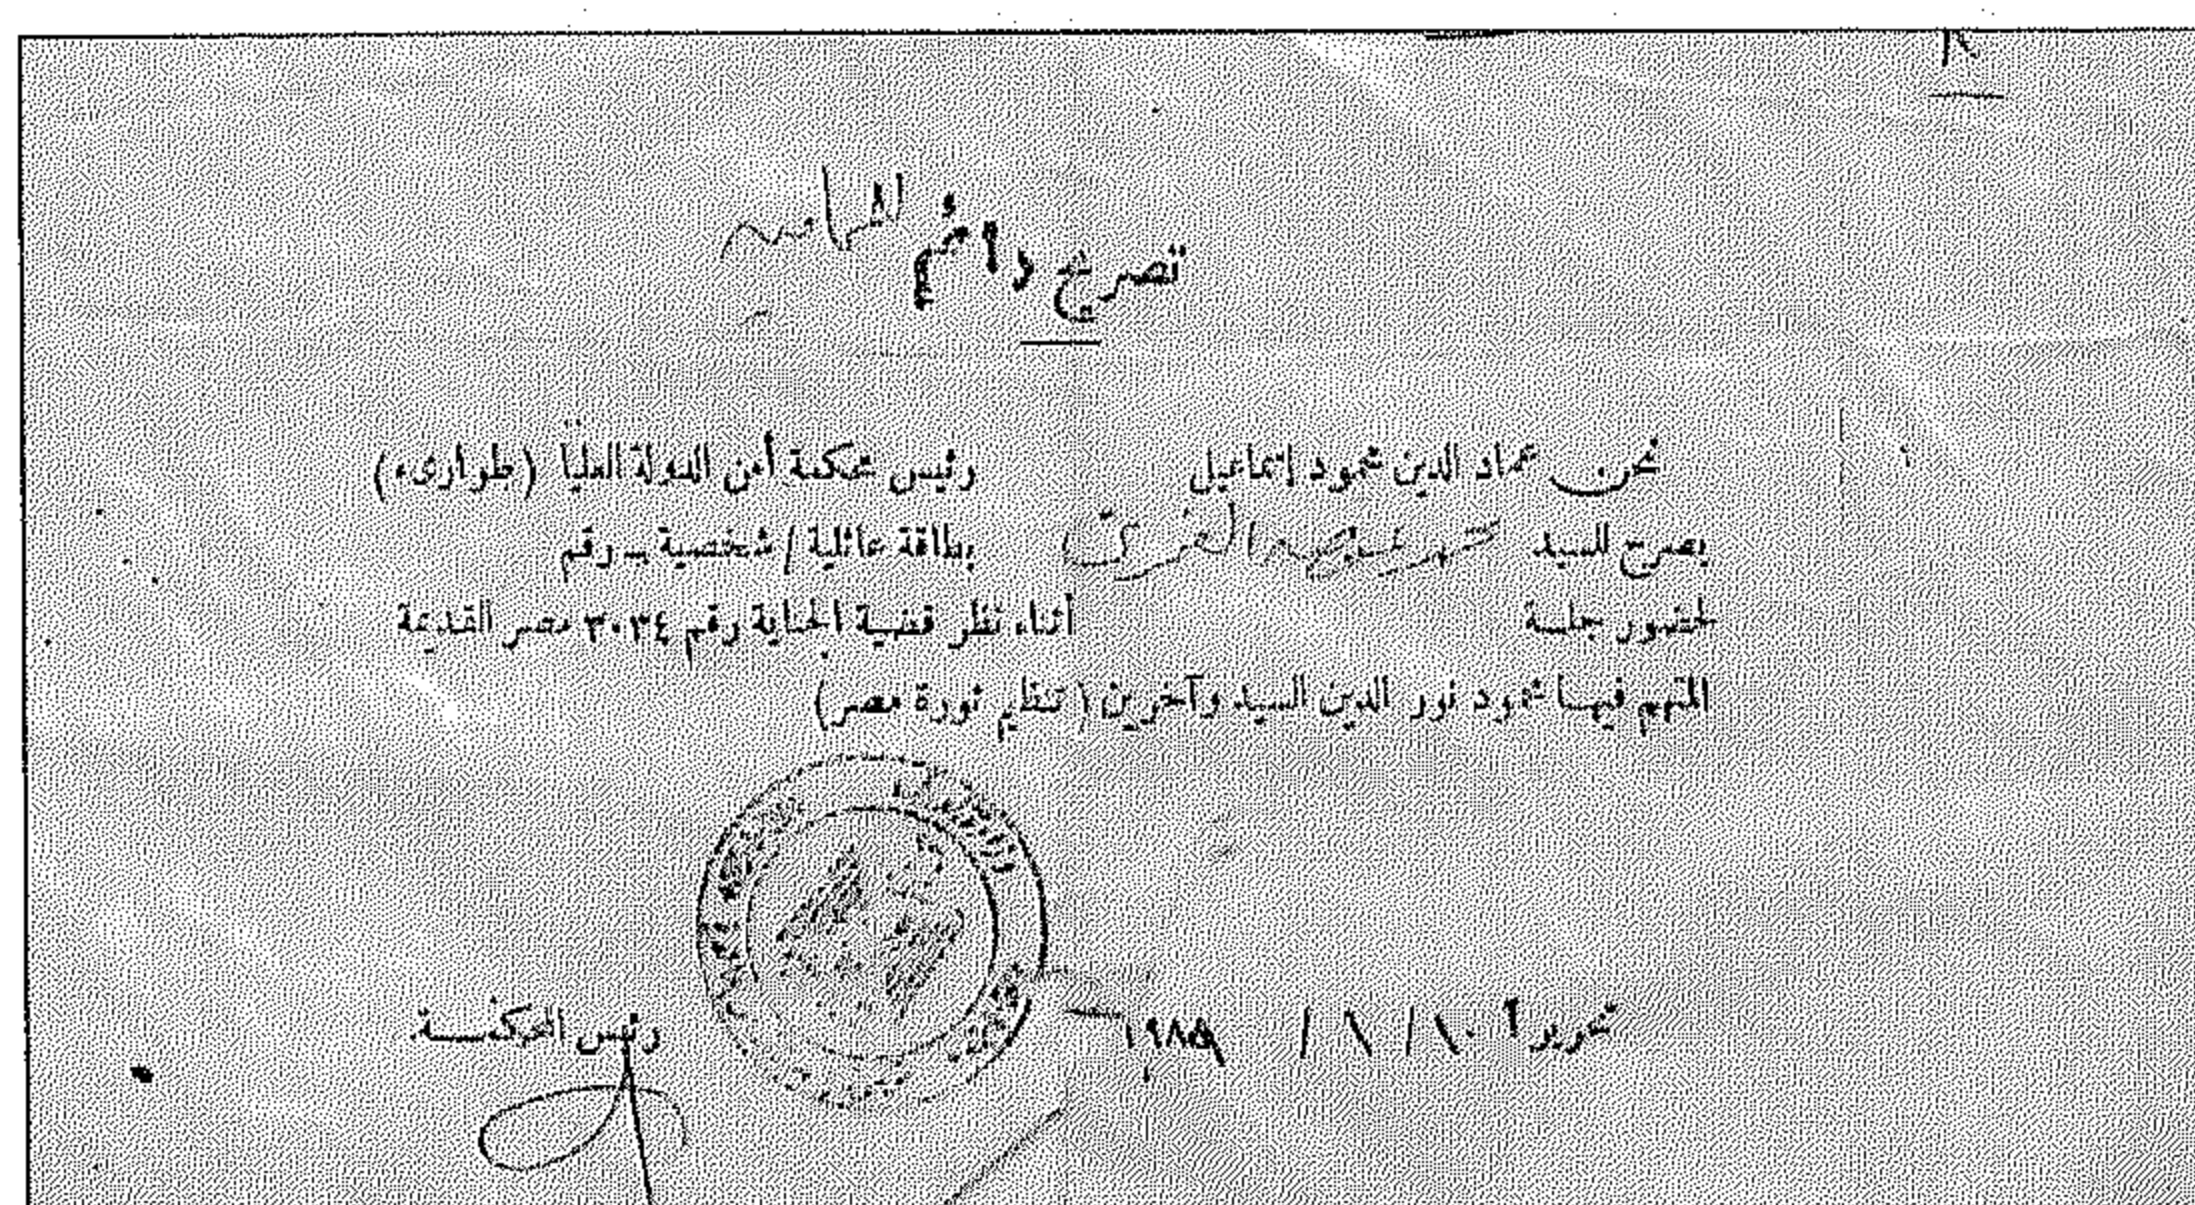 تصريح دائم للمحاميه
نحن عماد الدين محمود إسماعيل رئيس محكمة أمن الدولة العليا (طوارىء)
يصرح للسيد بطاقة عائلية / شخصية ــ رقم
لحضور جلسة أثناء نظر قضية الجناية رقم ٣٠٣٤ مصر القديمة
المتهم فيها محمود نور الدين السيد وآخرين (تنظيم ثورة مصر)
تحريرا ١٠ / ١ / ١٩٨٩
رئيس المحكمــة